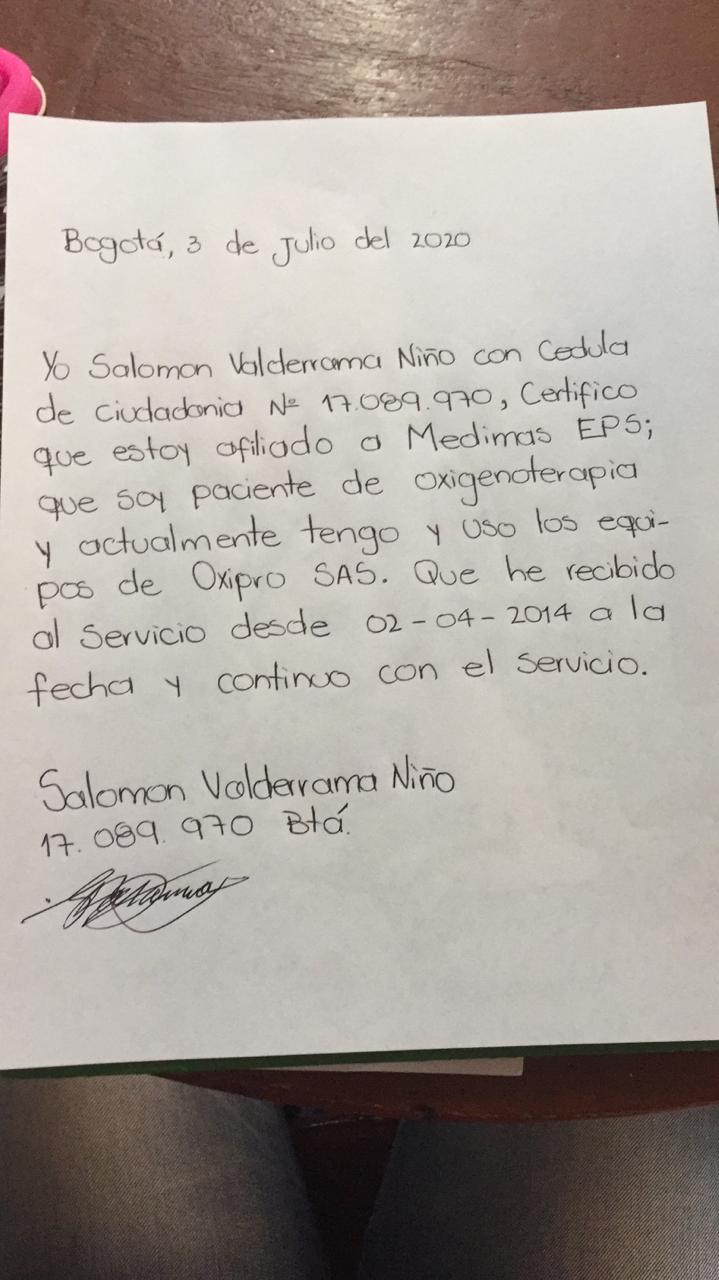 Bogotá, 3 de Julio del 2020
Yo Salomon Valderrama Niño con Cedula
de ciudadania Nº 17.089.970, Certifico
que estoy afiliado a Medimas EPS;
que soy paciente de oxigenoterapia
y actualmente tengo y uso los equi-
pos de Oxipro SAS. Que he recibido
al servicio desde 02-04-2014 a la
fecha y continuo con el servicio.
Salomon Valderrama Niño
17.089.970 Btá.